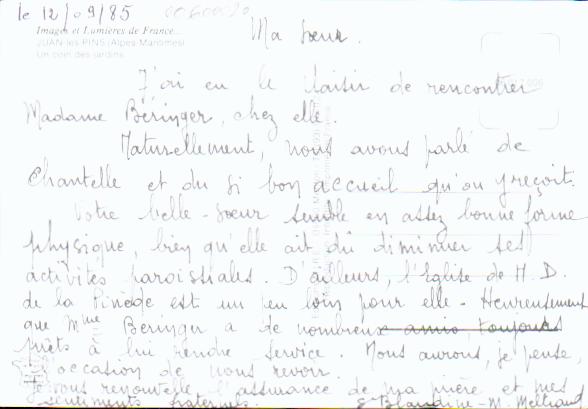 le 12/09/85
Images et Lumières de France...
JUAN-les-PINS (Alpes-Maritimes)
Un coin des jardins
Ma Sœur.
J'ai eu le plaisir de rencontrer
Madame Béringer, chez elle.
Naturellement, nous avons parlé de
Chantelle et du si bon accueil qu'on y reçoit.
Votre belle-sœur semble en assez bonne forme
physique, bien qu'elle ait dû diminuer ses
activités paroissiales. D'ailleurs, l'Eglise de N.D.
de la Pinède est un peu loin pour elle - Heureusement
que Mme Béringer a de nombreux amis, toujours
prêts à lui rendre service. Nous aurons, je pense,
occasion de nous revoir.
vous renouvelle l'assurance de ma prière et mes
sentiments fraternels. Sr Blandine-M.